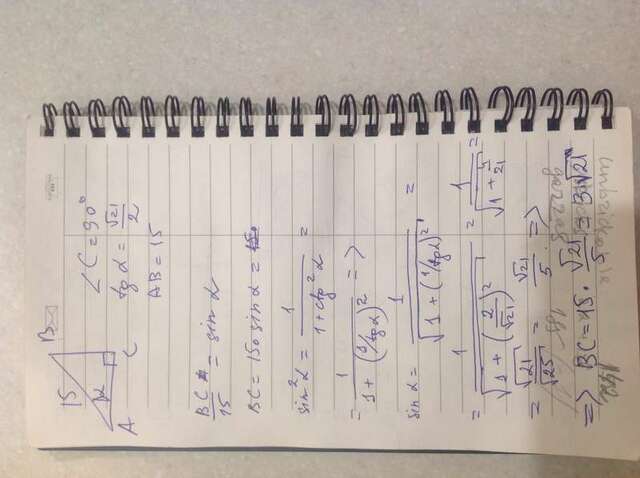 B
15
α
A
C
∠C = 90°
tg α = √21/2
AB = 15
BC/15 = sin α
BC = 15 sin α =
sin²α = 1/(1 + ctg²α) =
= 1/(1 + (1/tg α)²) =>
sin α = 1/√(1 + (1/tg α)²) =
= 1/√(1 + (2/√21)²) = 1/√(1 + 4/21) =
= √21/√25 = √21/5 =>
=> BC = 15 · √21/5 = 3√21